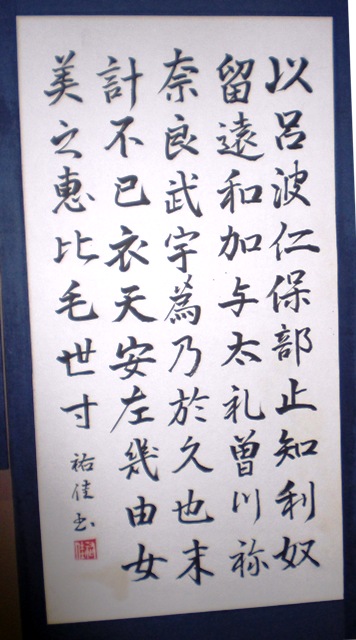 以呂波仁保部止知利奴
留遠和加与太礼曽川祢
奈良武宇爲乃於久也末
計不己衣天安左幾由女
美之恵比毛世寸
祐佳書